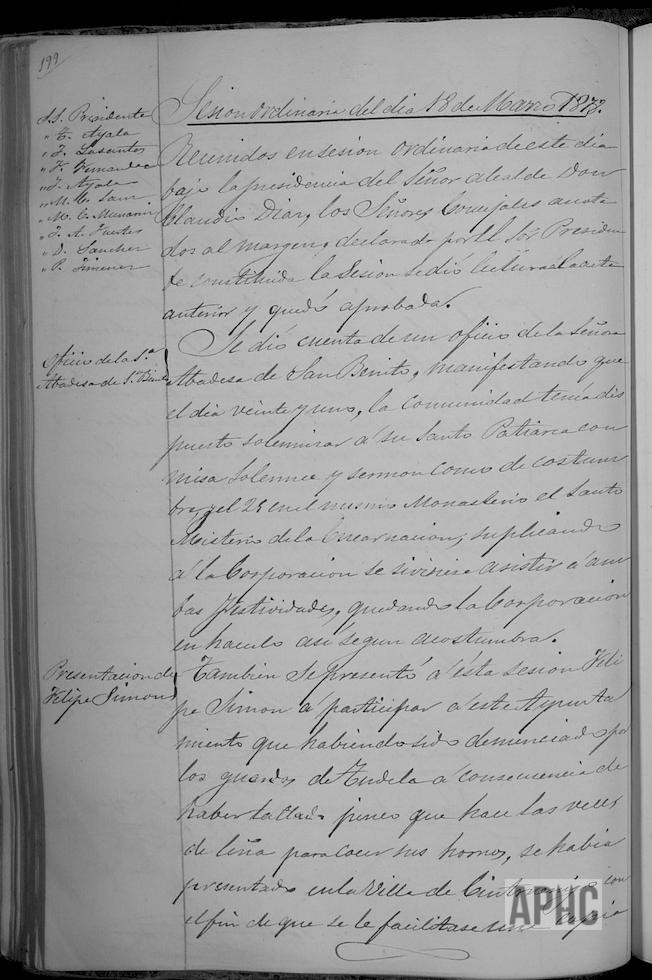 199
Sesion ordinaria del dia 18 de Marzo 1878.
S.S. Presidente
" E. Ayala
" J. Lasantos
" F. Fernandez
" J. Ayala
" M. G. Sanz
" M. C. Munarriz
" J. A. Fuertes
" D. Sanchez
" P. Jimenez
Reunidos en sesion ordinaria de este dia
bajo la presidencia del Señor alcalde Don
Claudio Diaz, los Señores Concejales anota
dos al margen, declarada por el Sor Presiden
te constituida la Sesion se dió lectura al acta
anterior y quedó aprobada.
Oficio de la Sa
Abadesa de Sn Bento
Se dió cuenta de un oficio de la Señora
Abadesa de San Benito, manifestando que
el dia veinte y uno, la comunidad tenia dis
puesto solemnizar á su Santo Patriarca con
misa solemne y sermon como de costum
bre, y el 25 en el mismo Monasterio el Santo
Misterio de la Encarnacion, suplicando
á la Corporacion se sirviera asistir á am
bas festividades, quedando la Corporacion
en hacerlo asi segun acostumbra.
Presentacion de
Felipe Simon
Tambien se presentó á ésta sesion Feli
pe Simon á participar á este Ayunta
miento que habiendo sido denunciado por
los guardas de Tudela á consecuencia de
haber tallado pinos que hace las veces
de leña para cocer sus hornos, se habia
presentado en la Villa de Cintruenigo con
el fin de que se le facilitase una copia
APHC